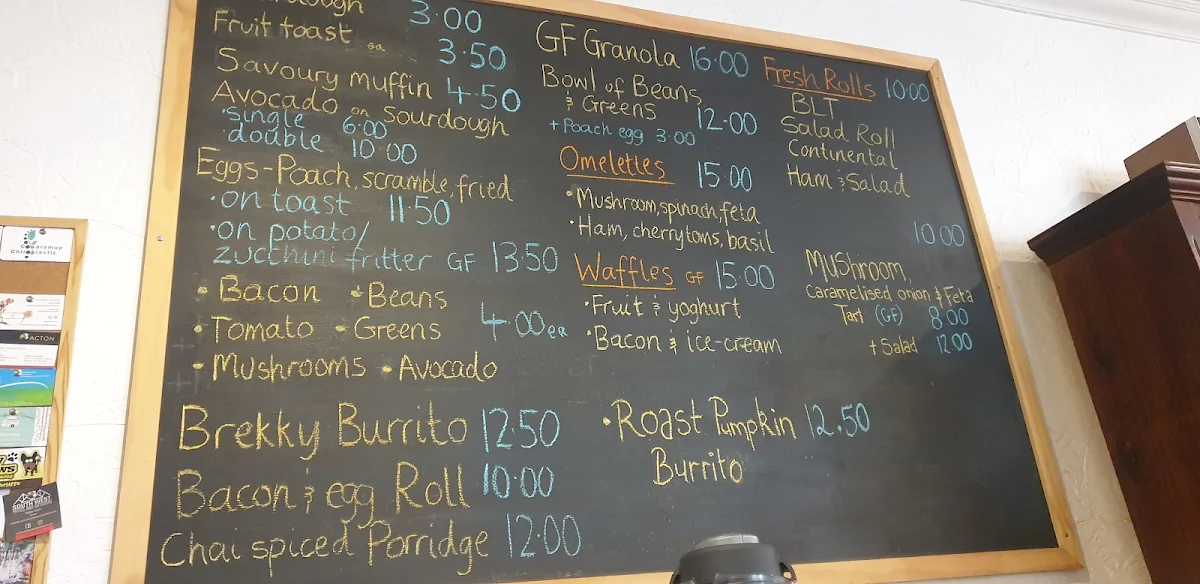 3.00
Fruit toast ea 3.50
Savoury muffin 4.50
Avocado on Sourdough
• single 6.00
• double 10.00
Eggs - Poach, scramble, fried
• on toast 11.50
• on potato/
zucchini fritter GF 13.50
• Bacon • Beans
• Tomato • Greens 4.00 ea
• Mushrooms • Avocado
Brekky Burrito 12.50
Bacon & egg Roll 10.00
Chai spiced Porridge 12.00
GF Granola 16.00
Bowl of Beans
& Greens 12.00
+ Poach egg 3.00
Omelettes 15.00
• Mushroom, spinach, feta
• Ham, cherrytoms, basil
Waffles GF 15.00
• Fruit & yoghurt
• Bacon & ice-cream
• Roast Pumpkin 12.50
Burrito
Fresh Rolls 10.00
BLT
Salad Roll
Continental
Ham & Salad
10.00
Mushroom,
Caramelised onion & Feta
Tart (GF) 8.00
+ Salad 12.00
Cowaramup
Chiropractic
ACTON
SOUTH WEST